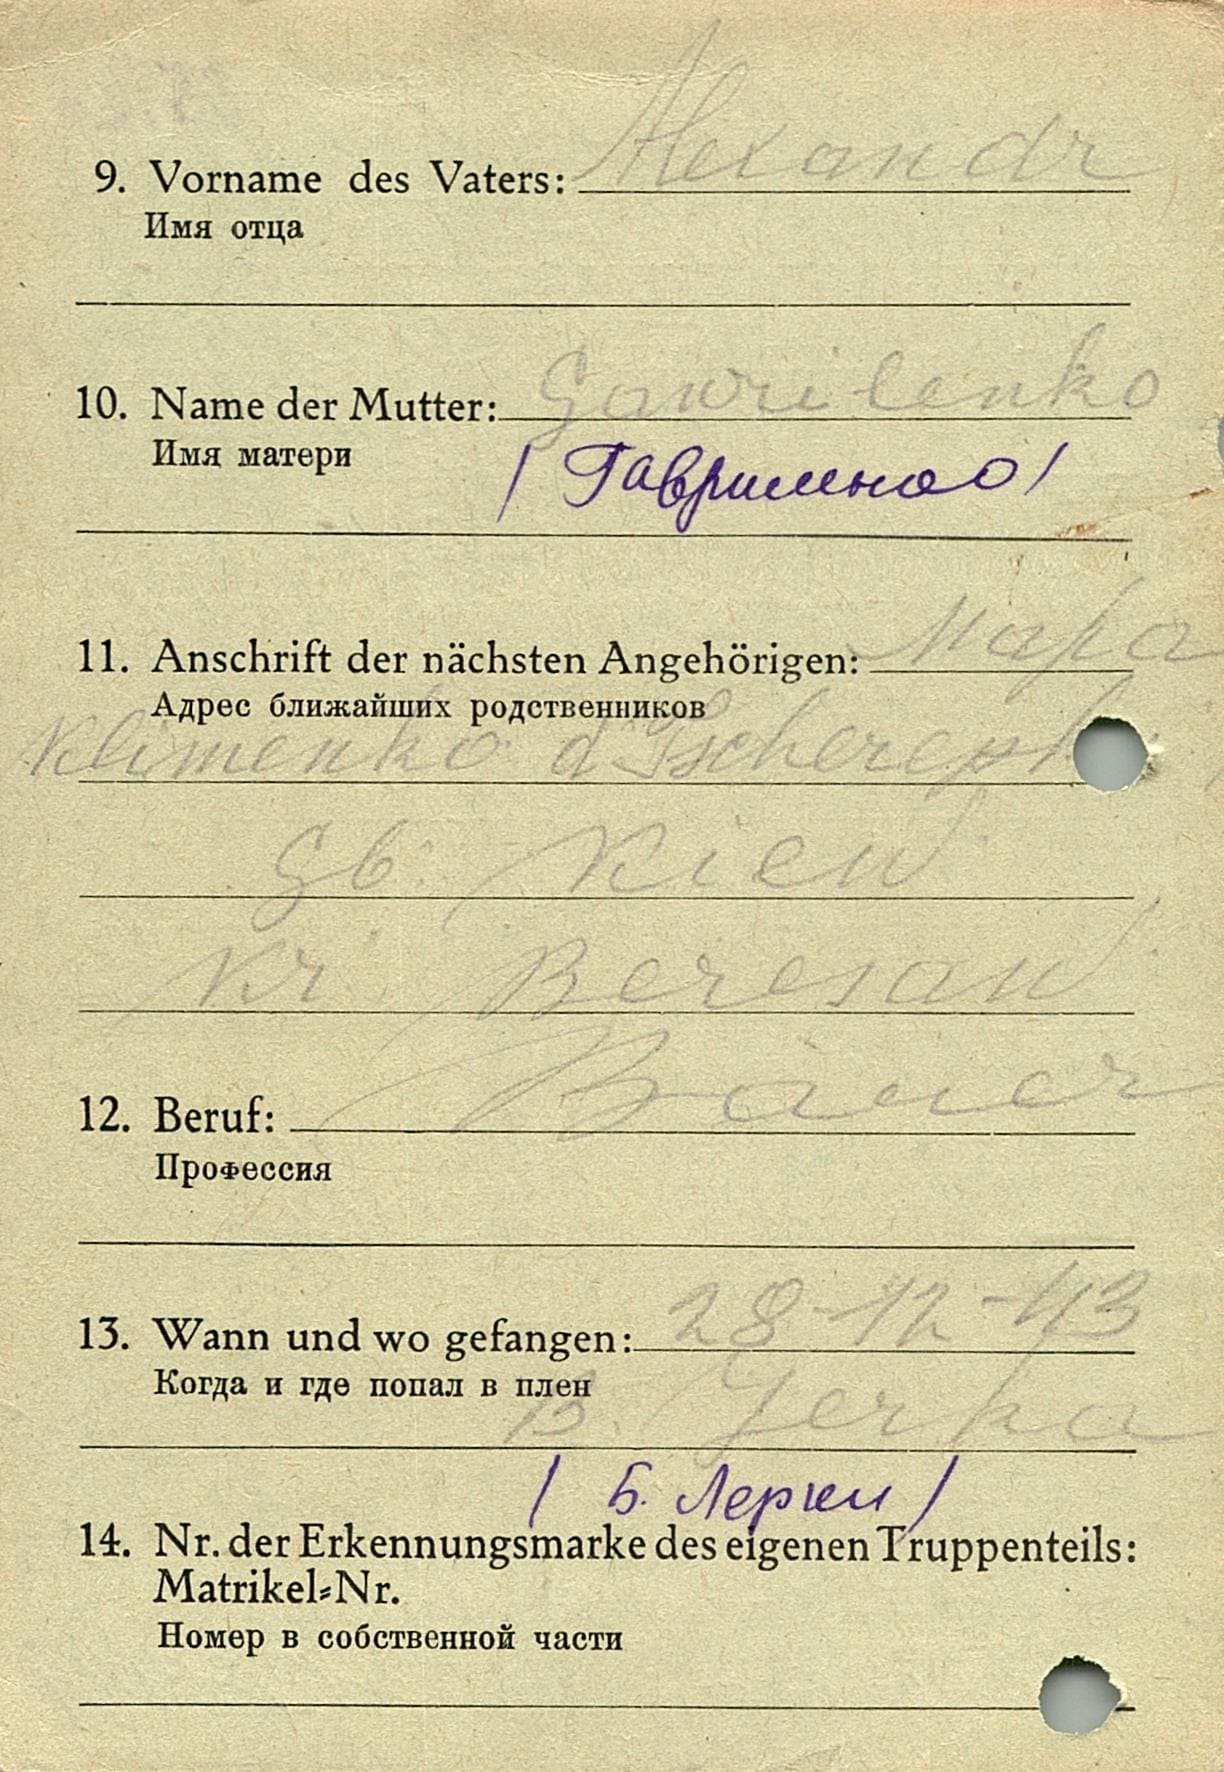 9. Vorname des Vaters: Alexandr
Имя отца
10. Name der Mutter: Gawrilenko
Имя матери
/ Гавриленко /
11. Anschrift der nächsten Angehörigen: Мара
Адрес ближайших родственников
Klimenko d Tscherepk
Gb. Kiew.
Kr. Beresan.
12. Beruf: Bauer
Профессия
13. Wann und wo gefangen: 28-12-43
Когда и где попал в плен
B.
/ Б. /
14. Nr. der Erkennungsmarke des eigenen Truppenteils:
Matrikel-Nr.
Номер в собственной части